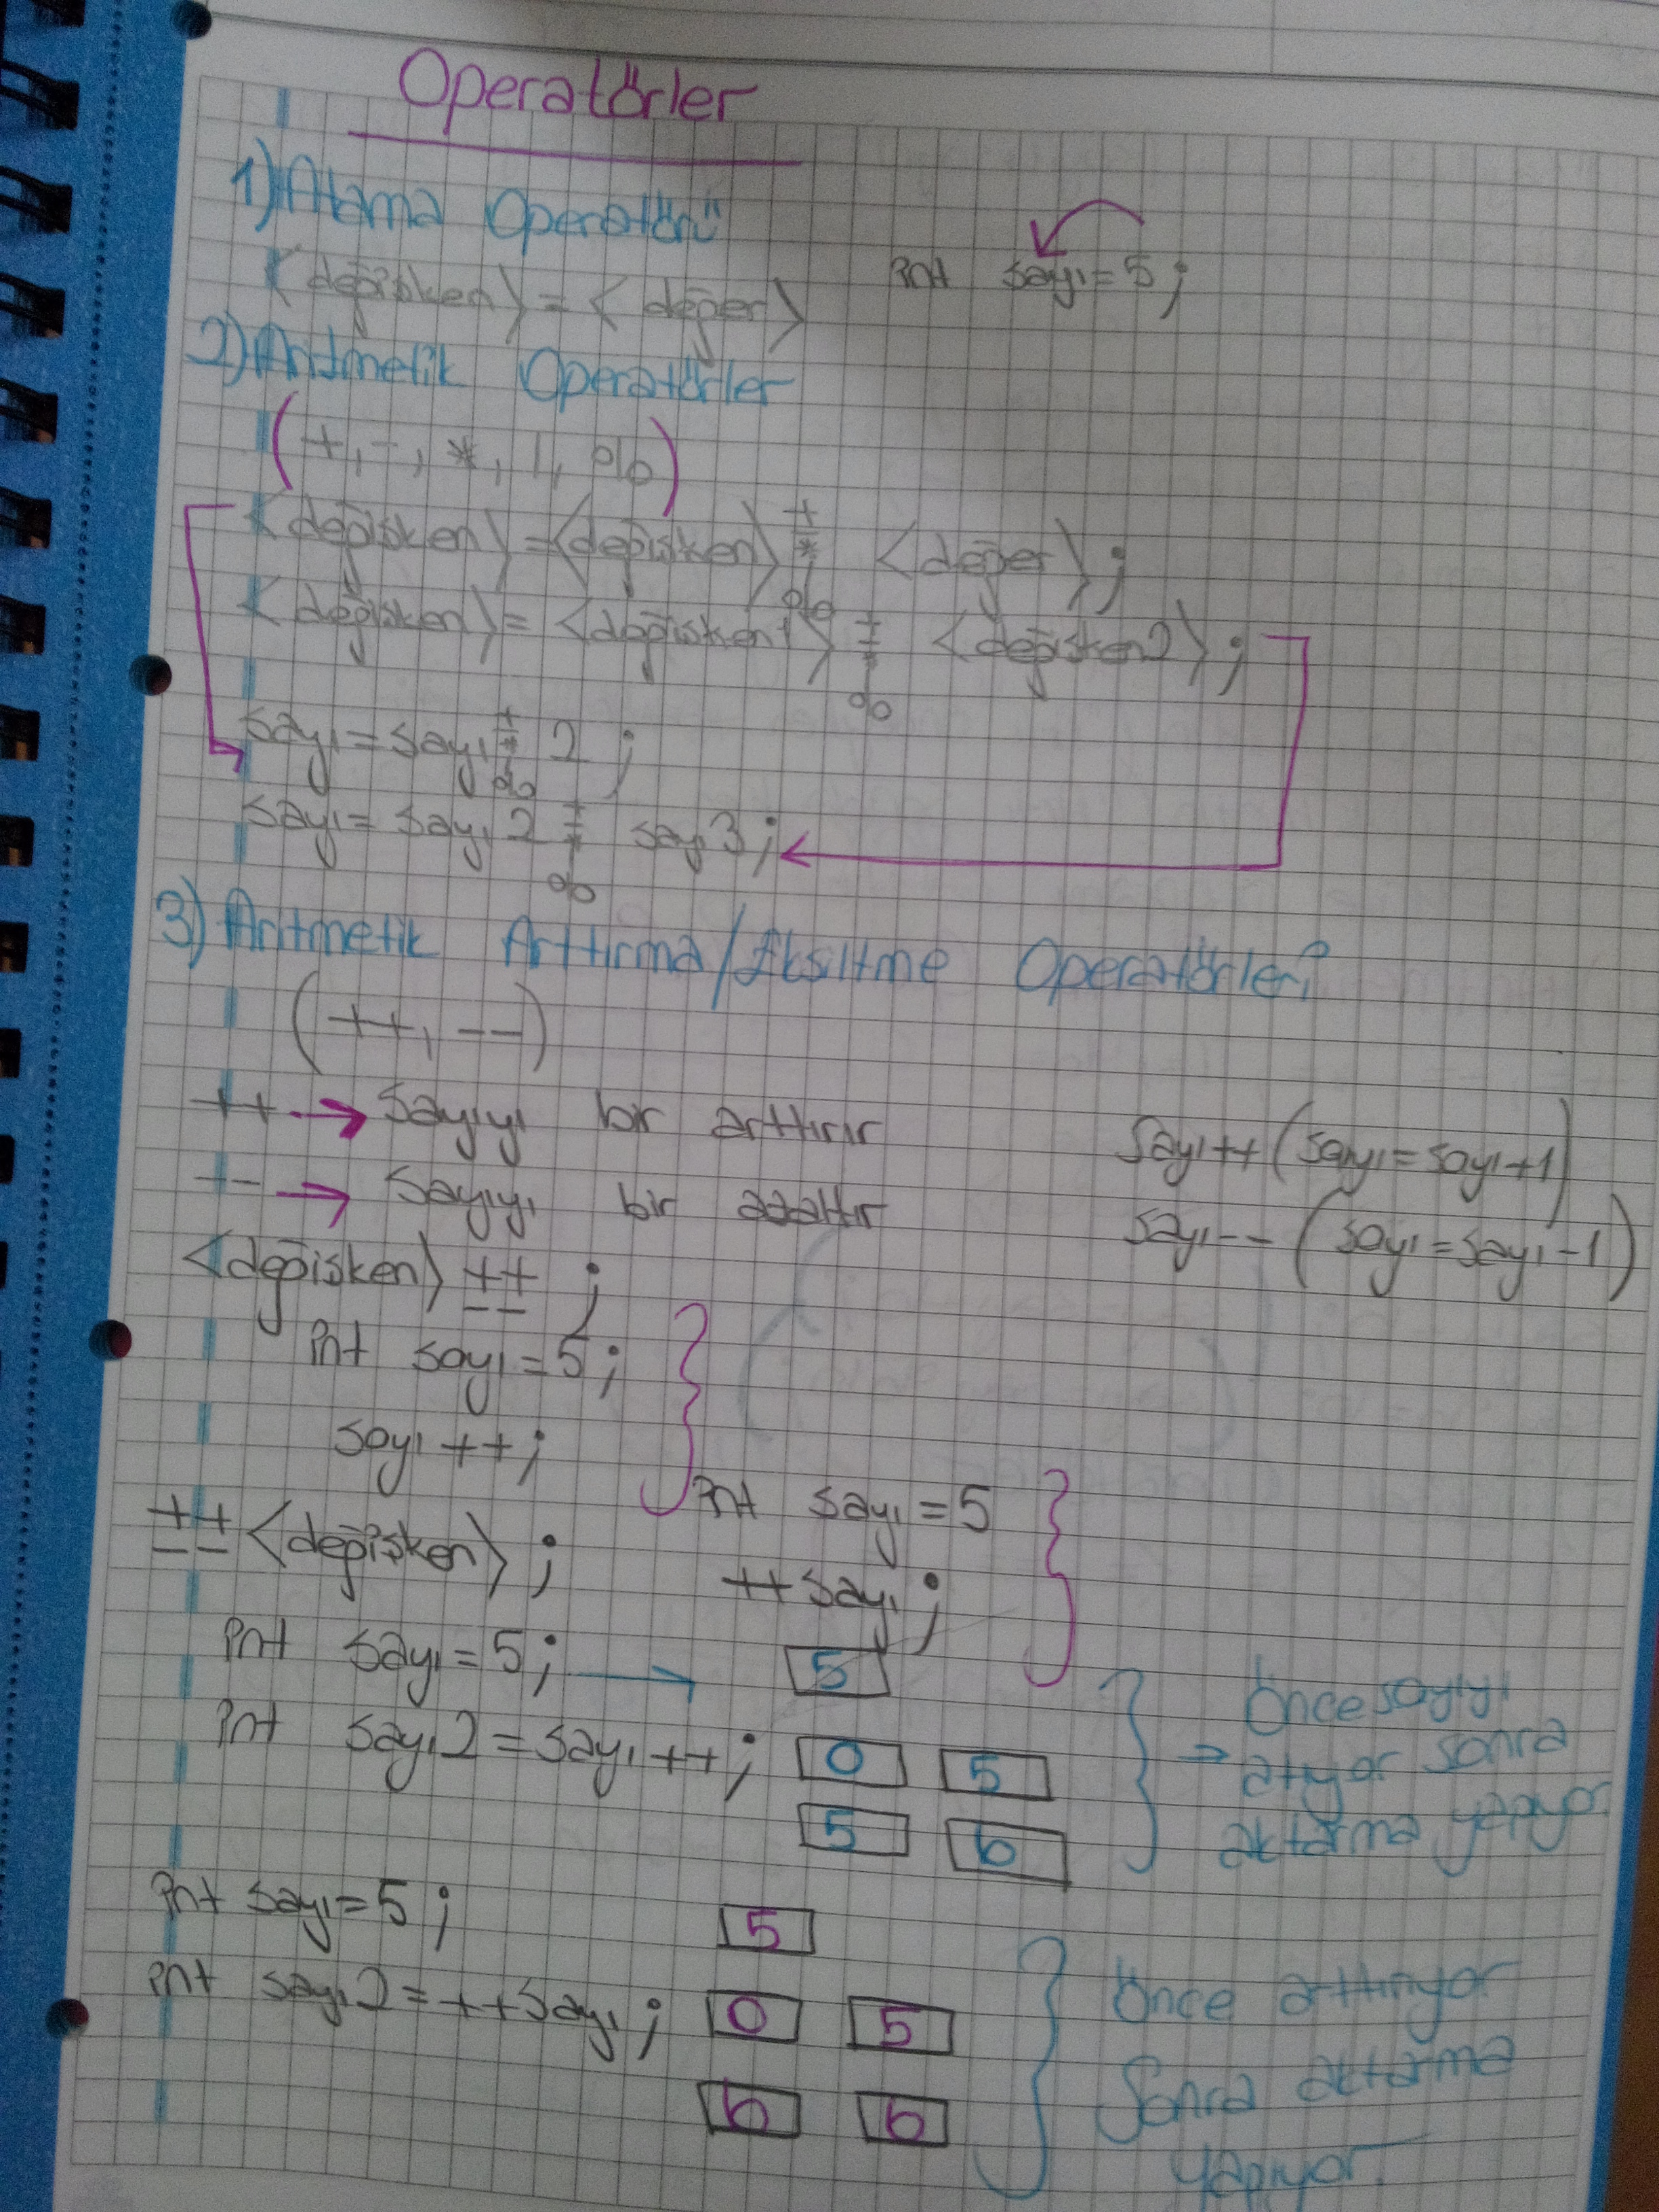 Operatörler
1) Atama Operatörü
<değişken> = <değer>
int sayı = 5;
2) Aritmetik Operatörler
(+, -, *, /, %)
<değişken> = <değişken> + - * / % <değer>;
<değişken> = <değişken1> + - * / % <değişken2>;
sayı = sayı + - * / % 2;
sayı = sayı2 + - * / % say3;
3) Aritmetik Arttırma/Eksiltme Operatörleri
(++, --)
++ → Sayıyı bir arttırır
sayı++ (sayı = sayı+1)
-- → Sayıyı bir azaltır
sayı-- (sayı = sayı-1)
<değişken> ++ -- ;
int sayı = 5;
sayı ++;
++ -- <değişken>;
int sayı = 5
++sayı;
int sayı = 5; → 5
int sayı2 = sayı++; 0 5
5 6
→ Önce sayıyı
atıyor sonra
aktarma yapıyor
int sayı = 5; 5
int sayı2 = ++sayı; 0 5
6 6
Önce arttırıyor
Sonra aktarma
yapıyor.